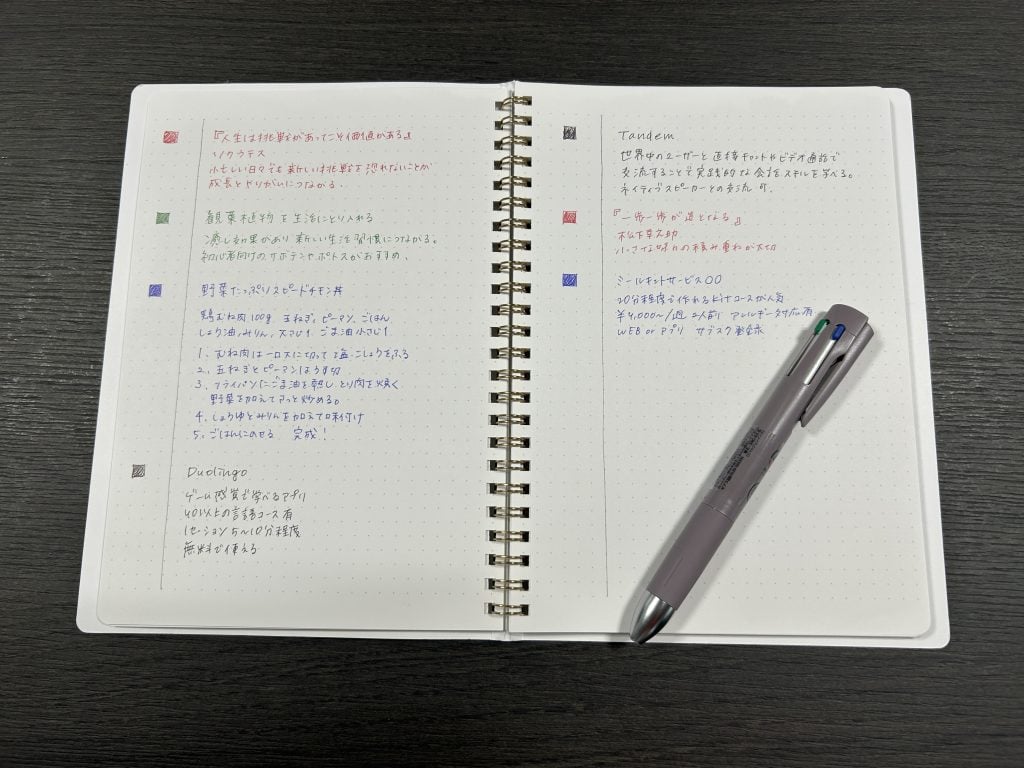 『人生は挑戦があってこそ価値がある。』
ソクラテス
忙しい日々でも新しい挑戦を恐れないことが
成長とやりがいにつながる.
観葉植物を生活にとり入れる
癒し効果があり新しい生活習慣につながる。
初心者向けのサボテンやポトスがおすすめ.
野菜たっぷりスピードチキン丼
鶏むね肉100g 玉ねぎ、ピーマン、ごはん
しょう油,みりん,大さじ1 ごま油小さじ1
1. むね肉は一口大に切って塩、こしょうをふる
2. 玉ねぎとピーマンはうす切
3. フライパンにごま油を熱し とり肉を焼く
野菜を加えてさっと炒める。
4. しょうゆとみりんを加えて味付け
5. ごはんにのせる 完成!
Duolingo
ゲーム感覚で学べるアプリ
40以上の言語コース有
1セーション5~10分程度
無料で使える
Tandem
世界中のユーザーと直接チャットやビデオ通話で
交流することで実践的な会話スキルを学べる。
ネイティブスピーカーとの交流 可.
『一歩一歩が道となる』
松下幸之助
小さな 積み重ねが大切
ミールキットサービス〇〇
20分程度で作れる コースが人気
¥4,000~/週 2人前 アレルギー対応有
WEB or アプリ サブスク 登録